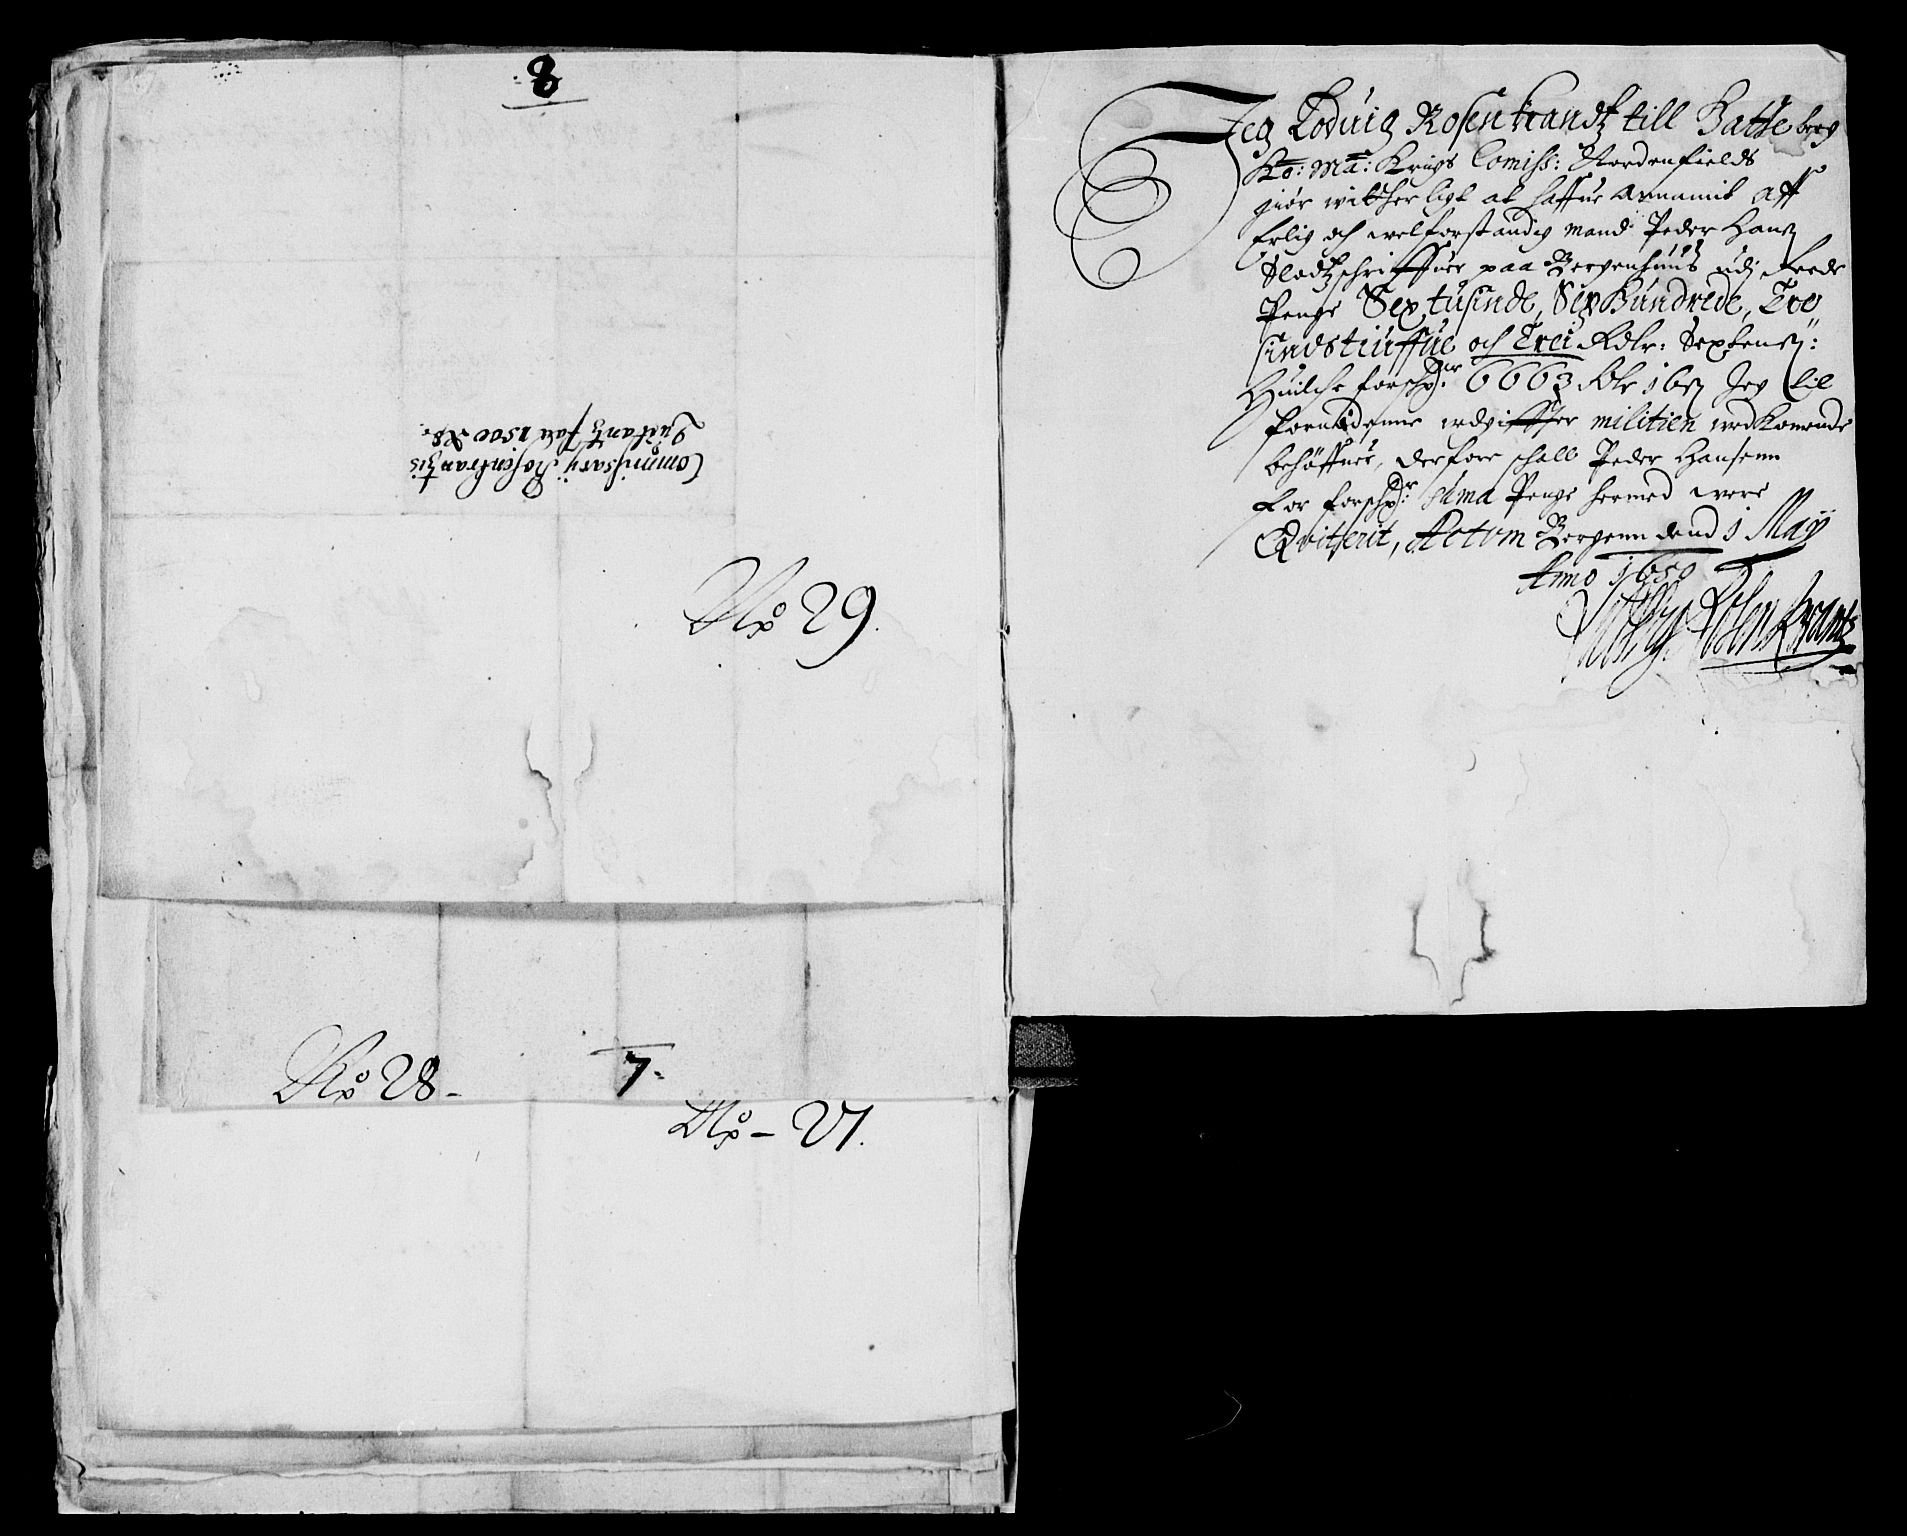 8
Commissarij Rosenkrantzis
Quittantz paa 1500 Rd.
No 29.
No 28 -
7.
No - 27.
Jeg Loduig Rosenkrandtz till Hatteberg
Ko: Ma: Krigs Comiss: Nordenfields
giør witterligt at haffue annamit aff
Erlig och welforstandig mand Peder Hanß
Slodtzschriffuer paa Bergenhuuß udj Reede
Penge Sextusinde, Sex Hundrede, Tre
sindstiuffue och Trei Rdlr:
Huilche forschr: 6663 Rdr Jeg til
fornødenne udgiffter militien wedkomende
behøffuer, derfore schall Peder Hansenn
for forschr: suma Penge hermed were
Qvitterit, Actum Bergenn dend 1 Maij
Anno 1650
Ludvig RosenKrantz